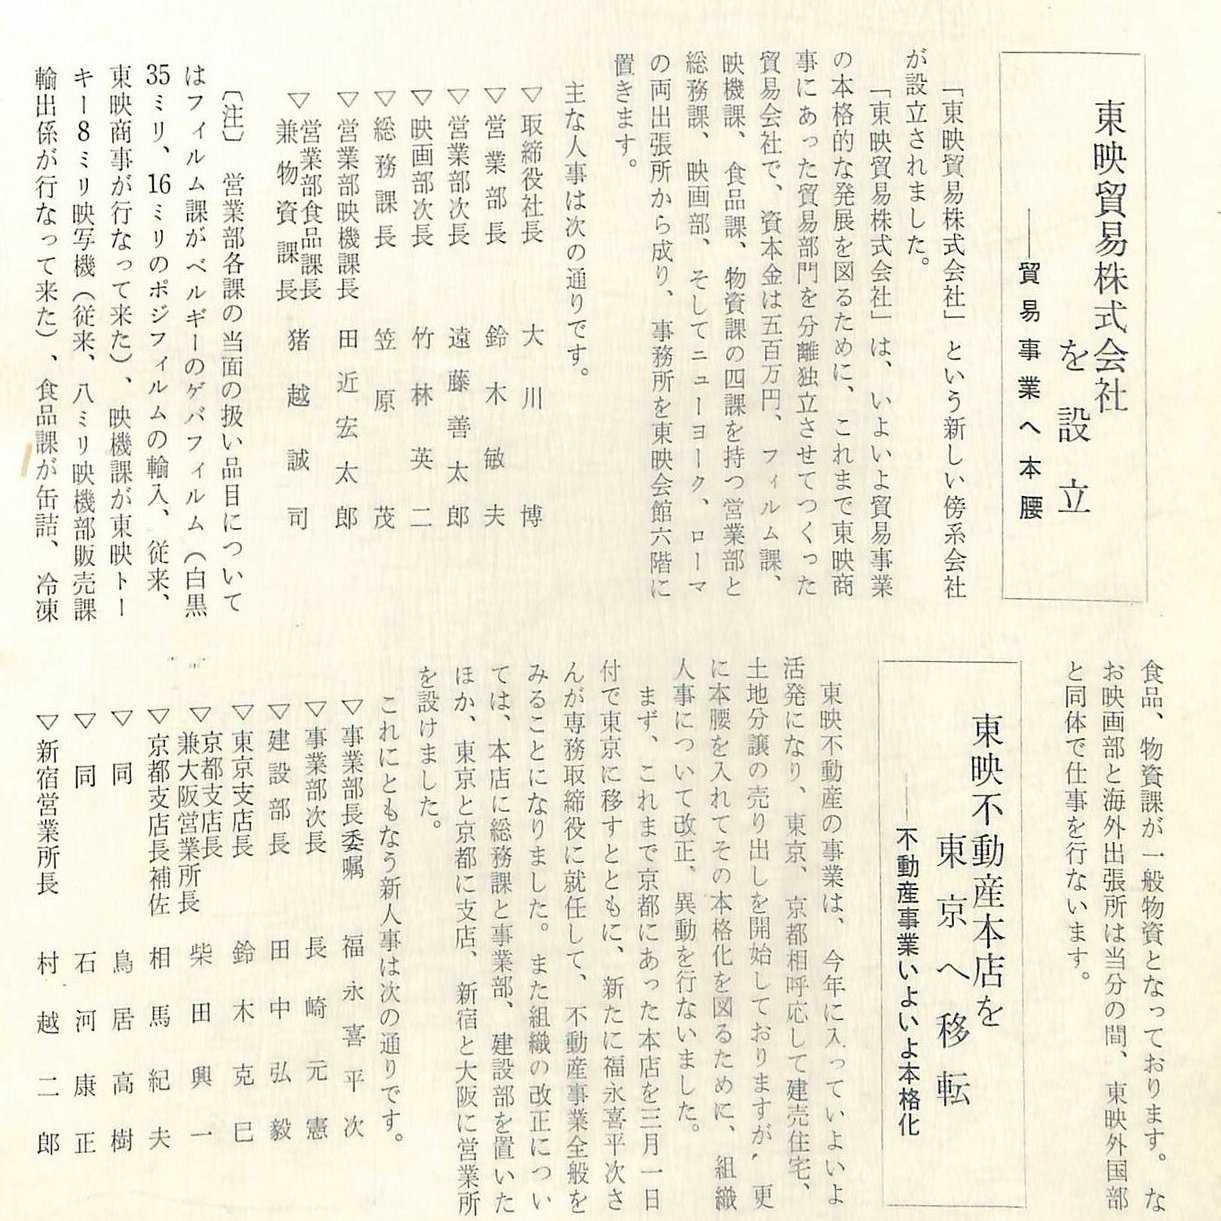 東映貿易株式会社
を設立
――貿易事業へ本腰
「東映貿易株式会社」という新しい傍系会社
が設立されました。
「東映貿易株式会社」は、いよいよ貿易事業
の本格的な発展を図るために、これまで東映商
事にあった貿易部門を分離独立させてつくった
貿易会社で、資本金は五百万円、フィルム課、
映機課、食品課、物資課の四課を持つ営業部と
総務課、映画部、そしてニューヨーク、ローマ
の両出張所から成り、事務所を東映会館六階に
置きます。
主な人事は次の通りです。
▽取締役社長 大川博
▽営業部長 鈴木敏夫
▽営業部次長 遠藤善太郎
▽映画部次長 竹林英二
▽総務課長 笠原茂
▽営業部映機課長 田近宏太郎
▽営業部食品課長
兼物資課長 猪越誠司
〔注〕 営業部各課の当面の扱い品目について
はフィルム課がベルギーのゲバフィルム（白黒
35ミリ、16ミリのポジフィルムの輸入、従来、
東映商事が行なって来た）、映機課が東映トー
キー8ミリ映写機（従来、八ミリ映機部販売課
輸出係が行なって来た）、食品課が缶詰、冷凍
食品、物資課が一般物資となっております。な
お映画部と海外出張所は当分の間、東映外国部
と同体で仕事を行ないます。
東映不動産本店を
東京へ移転
――不動産事業いよいよ本格化
東映不動産の事業は、今年に入っていよいよ
活発になり、東京、京都相呼応して建売住宅、
土地分譲の売り出しを開始しておりますが、更
に本腰を入れてその本格化を図るために、組織
人事について改正、異動を行ないました。
まず、これまで京都にあった本店を三月一日
付で東京に移すとともに、新たに福永喜平次さ
んが専務取締役に就任して、不動産事業全般を
みることになりました。また組織の改正につい
ては、本店に総務課と事業部、建設部を置いた
ほか、東京と京都に支店、新宿と大阪に営業所
を設けました。
これにともなう新人事は次の通りです。
▽事業部長委嘱 福永喜平次
▽事業部次長 長崎元憲
▽建設部長 田中弘毅
▽東京支店長 鈴木克巳
▽京都支店長
兼大阪営業所長 柴田興一
▽京都支店長補佐 相馬紀夫
▽同 鳥居高樹
▽同 石河康正
▽新宿営業所長 村越二郎